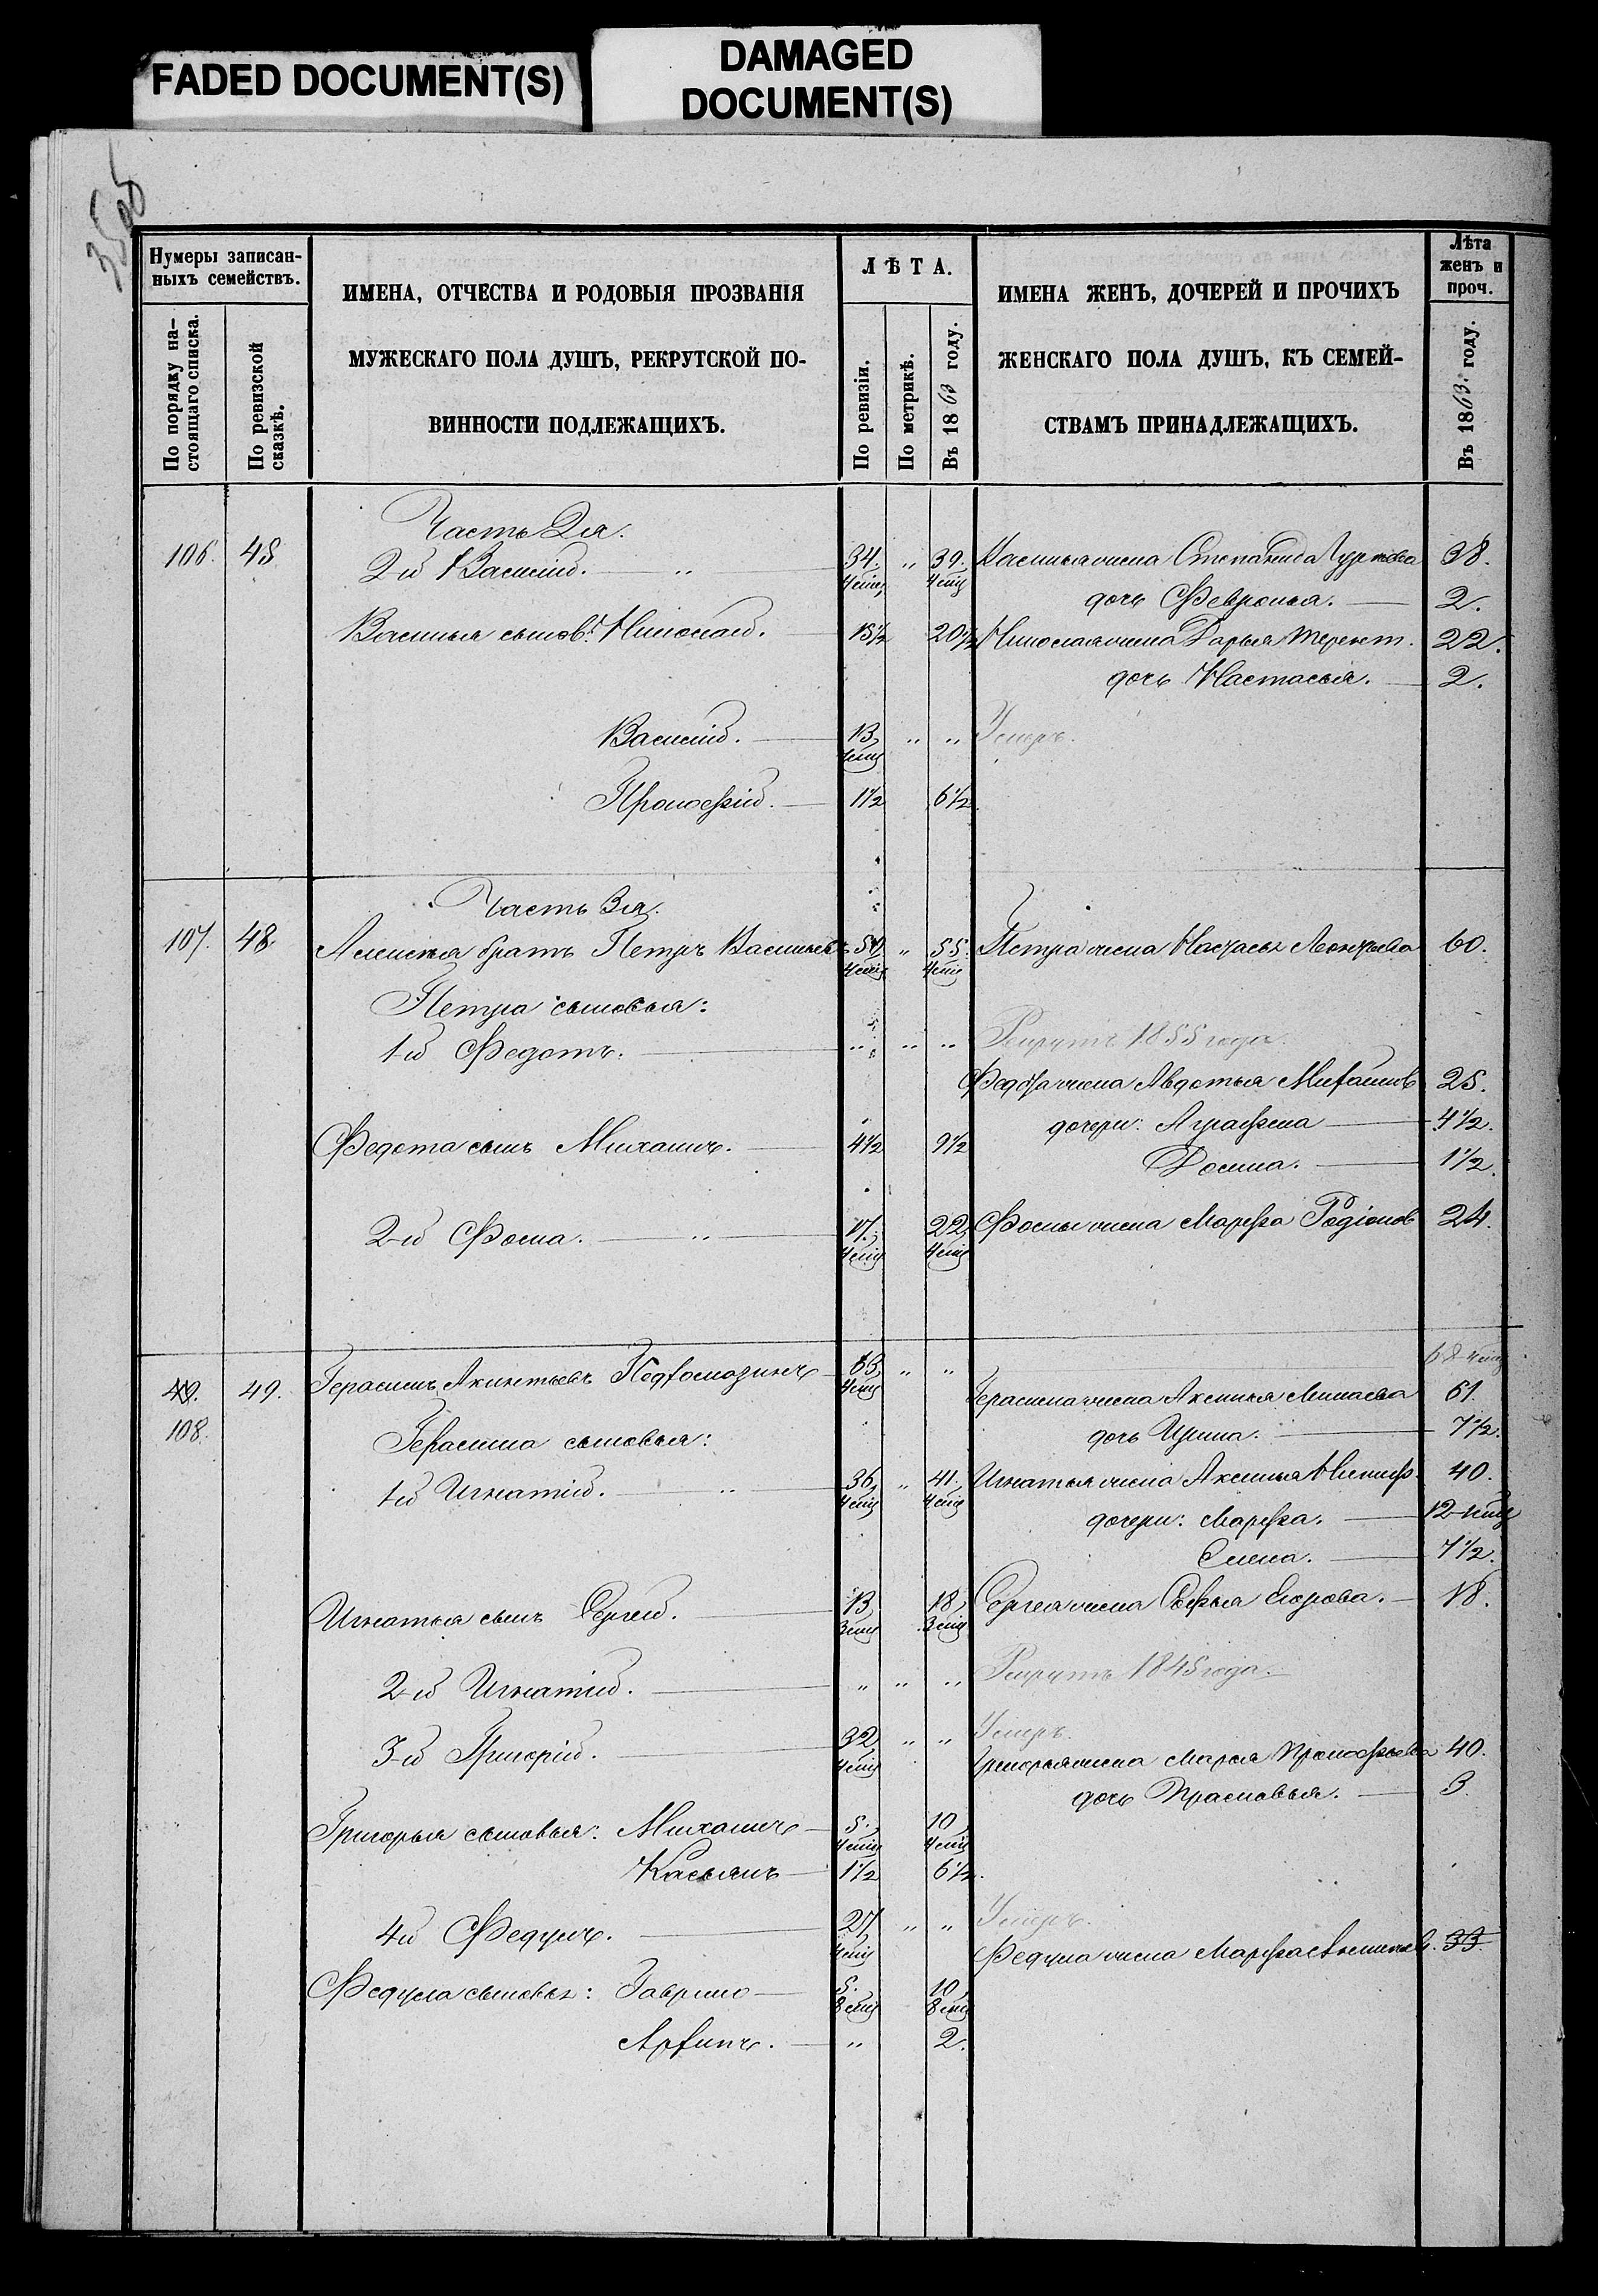 FADED DOCUMENT(S)
DAMAGED
DOCUMENT(S)
Нумеры записан-
ныхъ семействъ.
По порядку на-
стоящаго списка.
По ревизской
сказкѣ.
ИМЕНА, ОТЧЕСТВА И РОДОВЫЯ ПРОЗВАНІЯ
МУЖЕСКАГО ПОЛА ДУШЪ, РЕКРУТСКОЙ ПО-
ВИННОСТИ ПОДЛЕЖАЩИХЪ.
ЛѢТА.
По ревизіи.
По метрикѣ.
Въ 1863 году.
ИМЕНА ЖЕНЪ, ДОЧЕРЕЙ И ПРОЧИХЪ
ЖЕНСКАГО ПОЛА ДУШЪ, КЪ СЕМЕЙ-
СТВАМЪ ПРИНАДЛЕЖАЩИХЪ.
Лѣта
женъ и
проч.
Въ 1863. году.
Часть 2я.
106. 48 2-й Василій. " 34. " 39. жена Степанида 38.
дочь Февронья. 2.
Василья сынов: Николай. 15½ 20½ Николая жена Дарья Терент. 22.
дочь Настасья. 2.
Василій. 13, " " Умеръ.
Прокофій. 1½ 6½
Часть 3я.
107. 48. Алексѣя братъ Петръ Васильевъ 50, " 55. Петра жена Настасья Леонтьева 60.
Петра сыновья:
1-й Федотъ. " " " Рекрутъ 1855 года.
Федота жена Авдотья Михайлов 25.
дочери: Аграфена 4½.
Федота сынъ Михаилъ. 4½ 9½
Домна. 1½.
2-й Фома. " 17. 22, Фомы жена Марфа Родіонов 24.
49. 49. Герасимъ Акинтьевъ 63, " "
Герасима жена Аксинья Минаева 61.
108. дочь Ирина. 7½.
Герасима сыновья:
1-й Игнатій. " 36, " 41. Игнатья жена Аксинья Никиф. 40.
дочери: Марфа. 12
Елена. 7½.
Игнатья сынъ Сергей. 13 18, Сергея жена Софья Егорова. 18.
2-й Игнатій. " " " Рекрутъ 1845 года.
3-й Григорій. 32 " " Умеръ.
Григорья жена Марья Прокофьева 40.
дочь Прасковья. 3.
Григорья сыновья: Михаилъ 5. 10
Касьянъ 1½ 6½.
4й Федулъ. 27, " " Умеръ.
Федула жена Марфа 33.
Федула сыновья: Гаврило 5. 10
Архипъ. " 2.